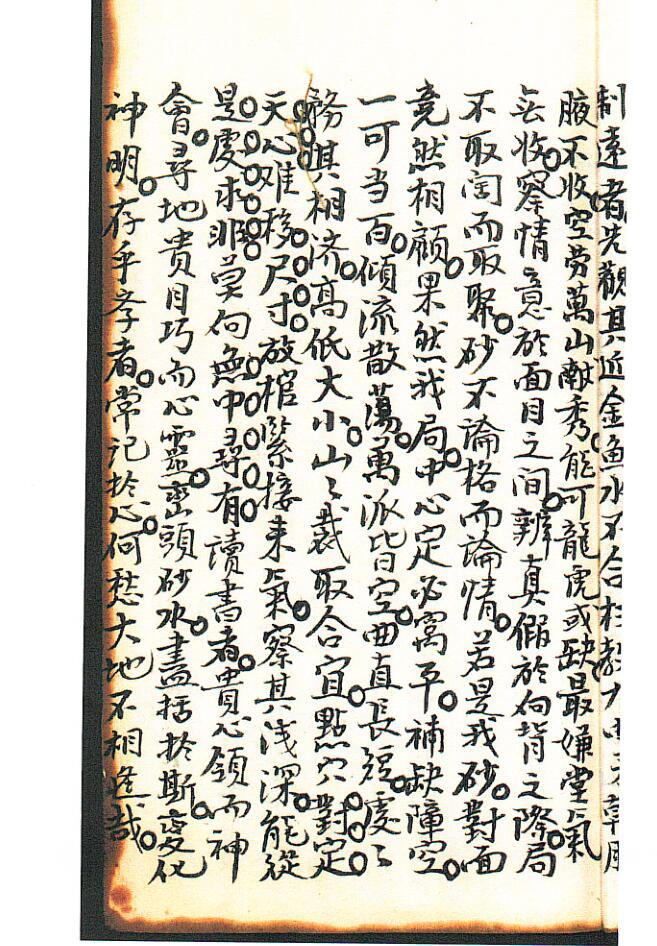 制遠者先觀其近金魚水不合枉教
腋不收空勞萬山献秀能可龍虎或缺最嫌堂氣
無收。察情意於面目之间。辨真假於向背之際。局
不取闊而取聚。砂不論格而論情。若是我砂。對面
竟然相顧。果然我局。中心定必窩平。補缺障空。
一可当百。傾流散蕩。萬派皆空。曲直長短。處〻
務其相济。高低大小。山〻裁取合宜。點穴對定
天心难移尺寸。放棺緊接来氣。察其浅深。能從
是處求非莫向無中尋有。讀書者。貴心領而神
會。尋地貴目巧而心靈。巒頭砂水。盡括於斯。变化
神明。存乎孝者。常记於心。何愁大地不相逢哉。